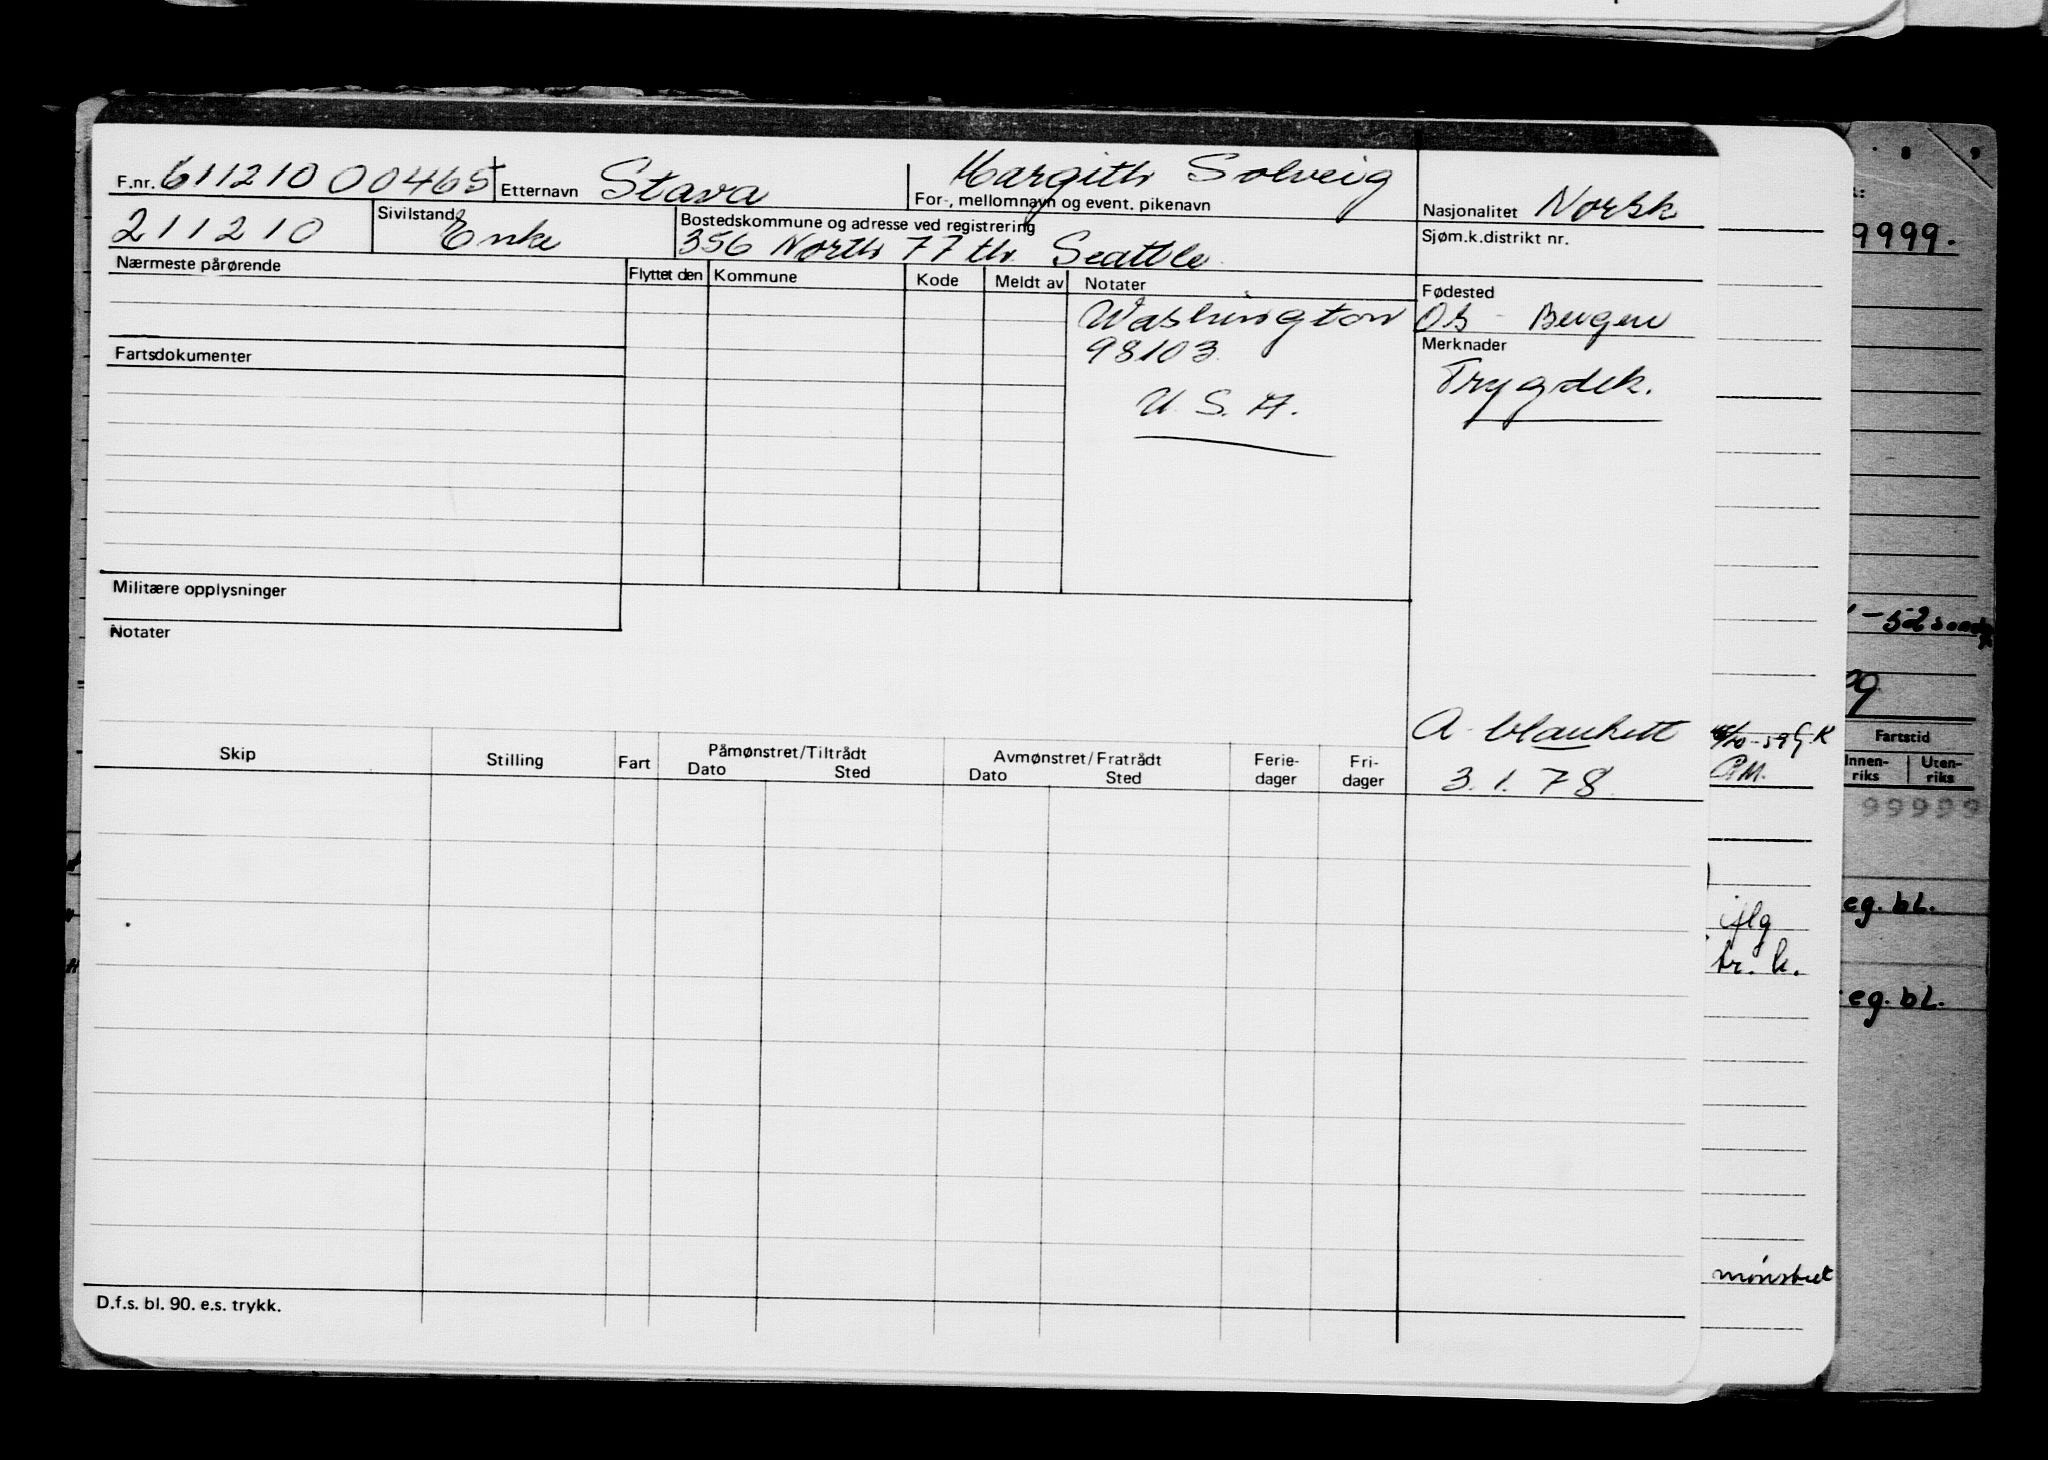 F.nr. 611210 00465 Etternavn Stava Margith Solveig
For-, mellomnavn og event. pikenavn
Nasjonalitet Norsk
211210 Sivilstand Enke
Bostedskommune og adresse ved registrering
356 North 77 th. Seattle
Sjøm.k.distrikt nr.
Nærmeste pårørende
Flyttet den Kommune Kode Meldt av Notater
Washington
98103
U. S. A.
Fødested
Bergen
Merknader
Trygdek.
Fartsdokumenter
Militære opplysninger
Notater
A blankett
3.1.78
Skip Stilling Fart Påmønstret/Tiltrådt Avmønstret/Fratrådt Ferie-dager Fri-dager
Dato Sted Dato Sted
D.f.s. bl. 90. e.s. trykk.
9999.
Fartstid
Innen-riks Uten-riks
99999
eg. bl.
tr. k.
eg. bl.
mønstret